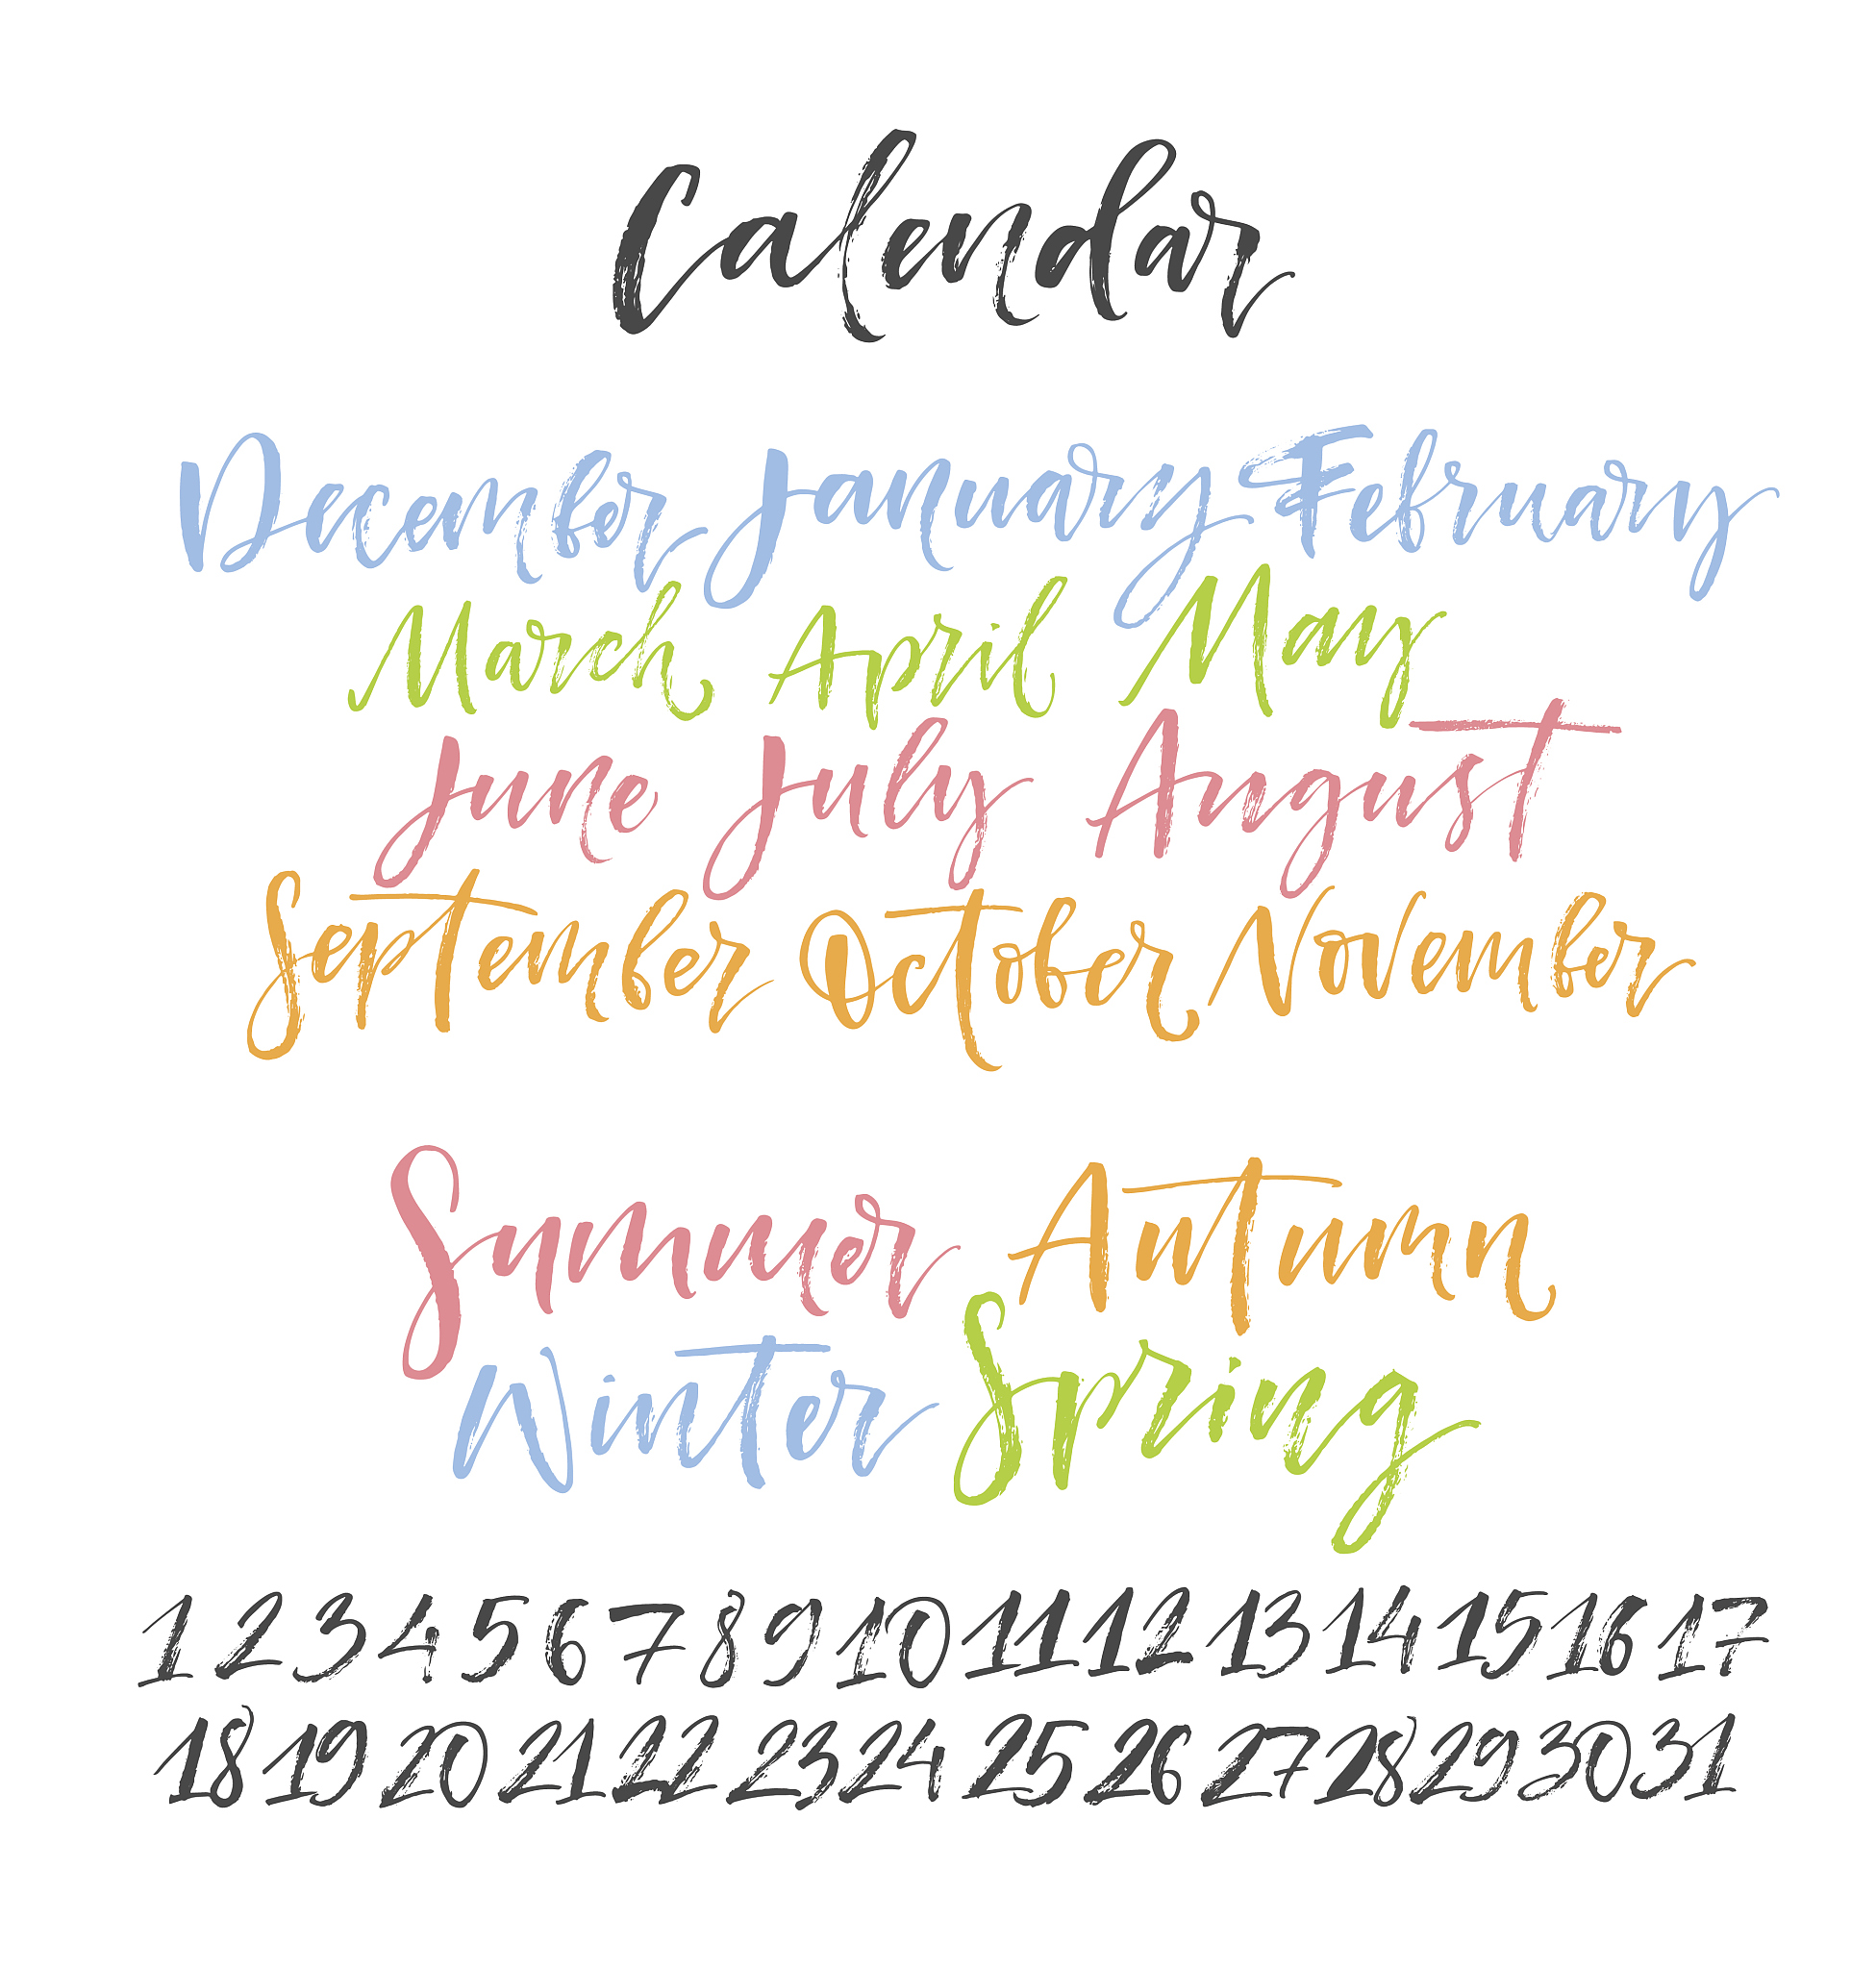 Calendar
December January February
March April May
June July August
September October November
Summer Autumn
Winter Spring
1 2 3 4 5 6 7 8 9 10 11 12 13 14 15 16 17
18 19 20 21 22 23 24 25 26 27 28 29 30 31